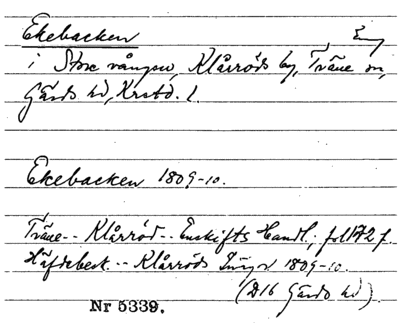 Ekebacken Eng
i Store vången, Klårröds by, Träne sn,
Gärds hd, Krstd. l.
Ekebacken 1809-10.
Träne-- Klårröd-- Enskifts Handl., fol 172 f.
Häfdebeskr. -- Klårröds 1809-10.
(D16 Gärds hd)
Nr 5339.